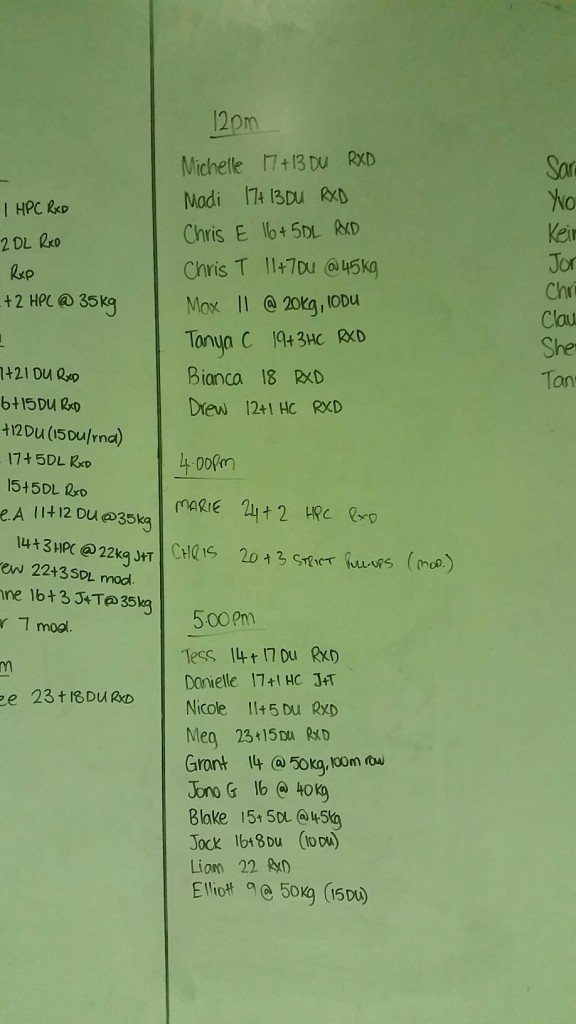 1 HPC RXD
2 DL RXD
RXD
+2 HPC @ 35kg
+21 DU RXD
6+15DU RXD
+12DU (15DU/rnd)
17+5DL RXD
15+5DL RXD
e.A 11+12 DU @35kg
14+3HPC @22kg J+T
ew 22+3SDL mod.
nne 16+3 J+T@35kg
r 7 mod.
m
ee 23+18DU RXD
12pm
Michelle 17+13DU RXD
Madi 17+13DU RXD
Chris E 16+5DL RXD
Chris T 11+7DU @45kg
Max 11 @ 20kg, 10DU
Tanya C 19+3HC RXD
Bianca 18 RXD
Drew 12+1 HC RXD
4.00pm
MARIE 24+2 HPC RXD
CHRIS 20+3 STRICT PULL-UPS (MOD.)
5.00pm
Tess 14+17DU RXD
Danielle 17+1HC J+T
Nicole 11+5DU RXD
Meg 23+15DU RXD
Grant 14 @50kg, 100m row
Jono G 16 @ 40kg
Blake 15+5DL @45kg
Jack 16+8DU (10DU)
Liam 22 RXD
Elliott 9 @ 50kg (15DU)
Sar
Yvo
Keir
Jor
Chri
Clau
She
Tan